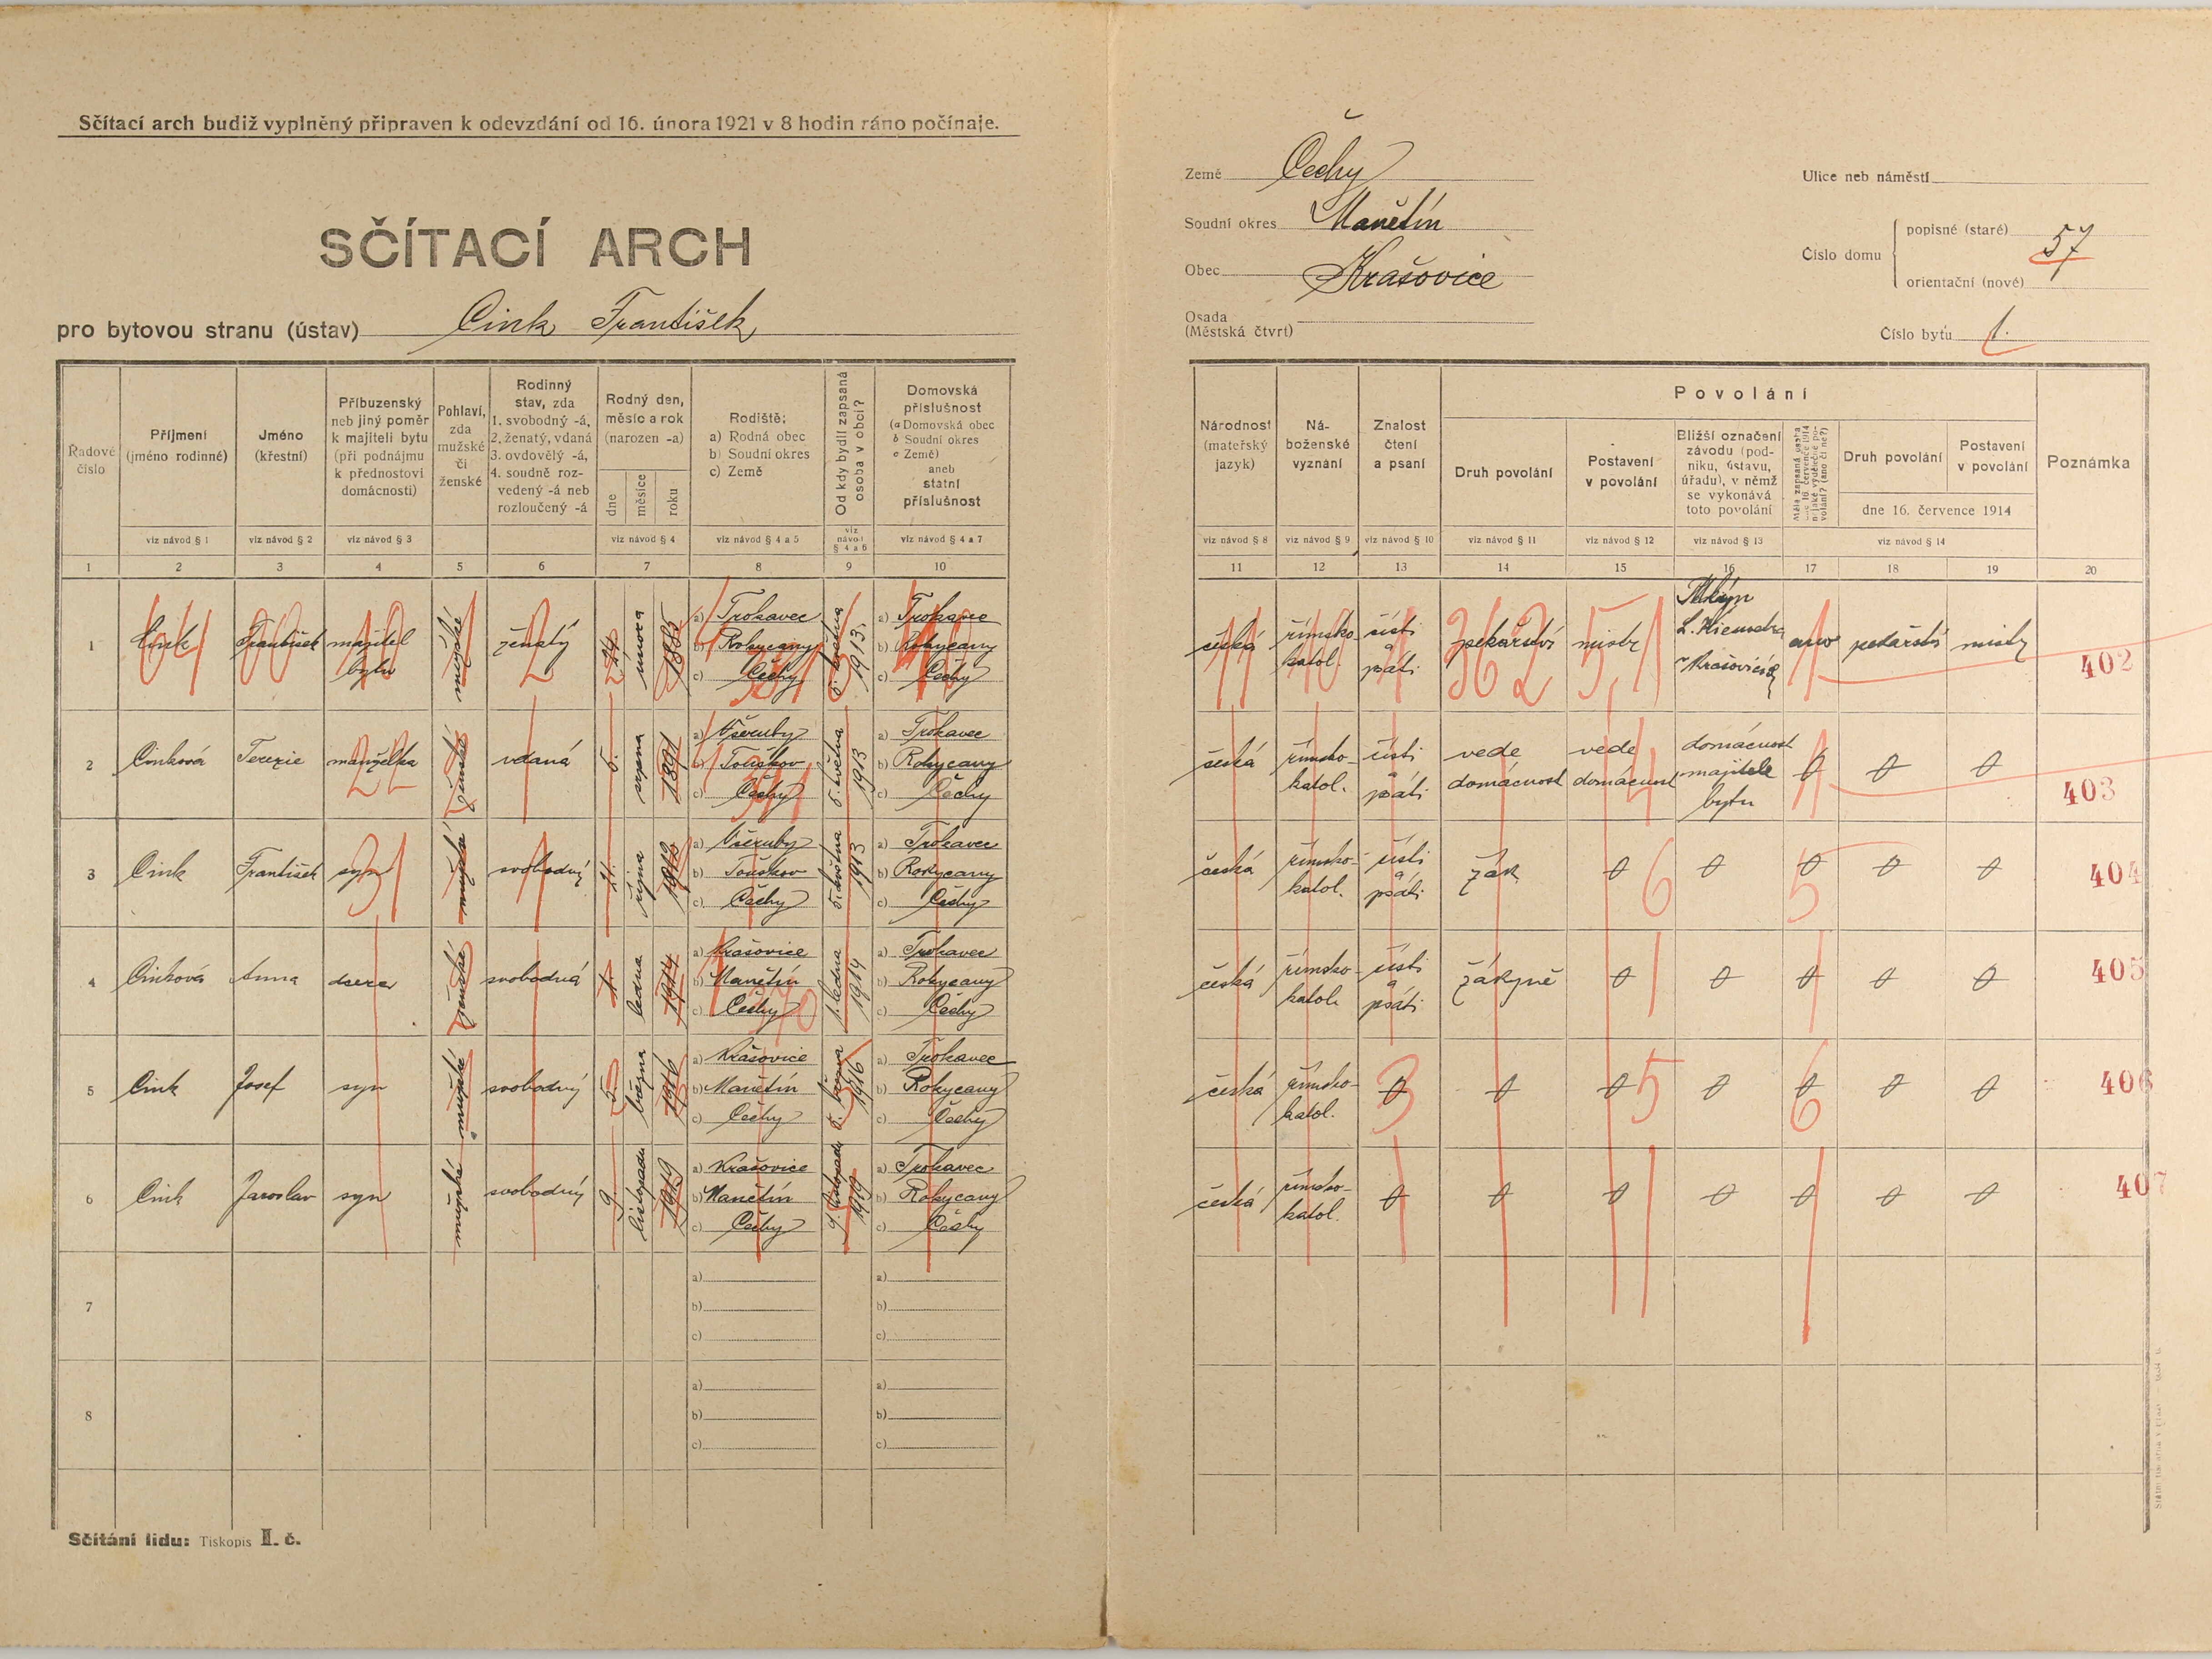 Sčítací arch budiž vyplněný připraven k odevzdání od 16. února 1921 v 8 hodin ráno počínaje.
SČÍTACÍ ARCH
pro bytovou stranu (ústav) Cink František
Země Čechy
Soudní okres Manětín
Obec Krašovice
Osada
(Městská čtvrť)
Ulice neb náměstí
Číslo domu
popisné (staré) 57
orientační (nové)
Číslo bytu 1.
Řadové číslo
Příjmení (jméno rodinné)
Jméno (křestní)
Příbuzenský neb jiný poměr k majiteli bytu (při podnájmu k přednostovi domácnosti)
Pohlaví, zda mužské či ženské
Rodinný stav, zda 1. svobodný -á, 2. ženatý, vdaná 3. ovdovělý -á, 4. soudně rozvedený -á neb rozloučený -á
Rodný den, měsíc a rok (narozen -a)
dne měsíce roku
Rodiště: a) Rodná obec b) Soudní okres c) Země
Od kdy bydlí zapsaná osoba v obci?
Domovská příslušnost (a Domovská obec b Soudní okres c Země) aneb státní příslušnost
viz návod § 1 viz návod § 2 viz návod § 3 viz návod § 4 viz návod § 4 a 5 viz návod § 4 a 6 viz návod § 4 a 7
1 2 3 4 5 6 7 8 9 10
Národnost (mateřský jazyk)
Náboženské vyznání
Znalost čtení a psaní
Povolání
Druh povolání
Postavení v povolání
Bližší označení závodu (podniku, ústavu, úřadu), v němž se vykonává toto povolání
Měla zapsaná osoba dne 16. července 1914 nějaké výdělečné povolání? (ano či ne?)
Druh povolání
Postavení v povolání
dne 16. července 1914
Poznámka
viz návod § 8 viz návod § 9 viz návod § 10 viz návod § 11 viz návod § 12 viz návod § 13 viz návod § 14
11 12 13 14 15 16 17 18 19 20
1 Cink František majitel bytu mužské ženatý 24. února 1885 a) Trokavec b) Rokycany c) Čechy 5. května 1913. a) Trokavec b) Rokycany c) Čechy
česká římsko-katol. čísti a psáti pekařství mistr v Krašovicích ano pekařství mistr 402
2 Cinková Terezie manželka ženské vdaná 5. srpna 1891 a) Všeruby b) Touškov c) Čechy 5. května 1913 a) Trokavec b) Rokycany c) Čechy
česká římsko-katol. čísti a psáti vede domácnost vede domácnost domácnost majitele bytu 0 0 0 403
3 Cink František syn mužské svobodný 21. října 1912 a) Všeruby b) Touškov c) Čechy 5. května 1913 a) Trokavec b) Rokycany c) Čechy
česká římsko-katol. čísti a psáti žák 0 0 0 0 404
4 Cinková Anna dcera ženské svobodná 1. ledna 1914 a) Krašovice b) Manětín c) Čechy 1. ledna 1914 a) Trokavec b) Rokycany c) Čechy
česká římsko-katol. čísti a psáti žákyně 0 0 0 0 0 405
5 Cink Josef syn mužské svobodný 5. března 1916 a) Krašovice b) Manětín c) Čechy 5. března 1916 a) Trokavec b) Rokycany c) Čechy
česká římsko-katol. 0 0 0 0 0 0 406
6 Cink Jaroslav syn mužské svobodný 9. listopadu 1919 a) Krašovice b) Manětín c) Čechy 9. listopadu 1919 a) Trokavec b) Rokycany c) Čechy
česká římsko-katol. 0 0 0 0 0 0 0 407
7 a) b) c) a) b) c)
8 a) b) c) a) b) c)
Sčítání lidu: Tiskopis II. č.